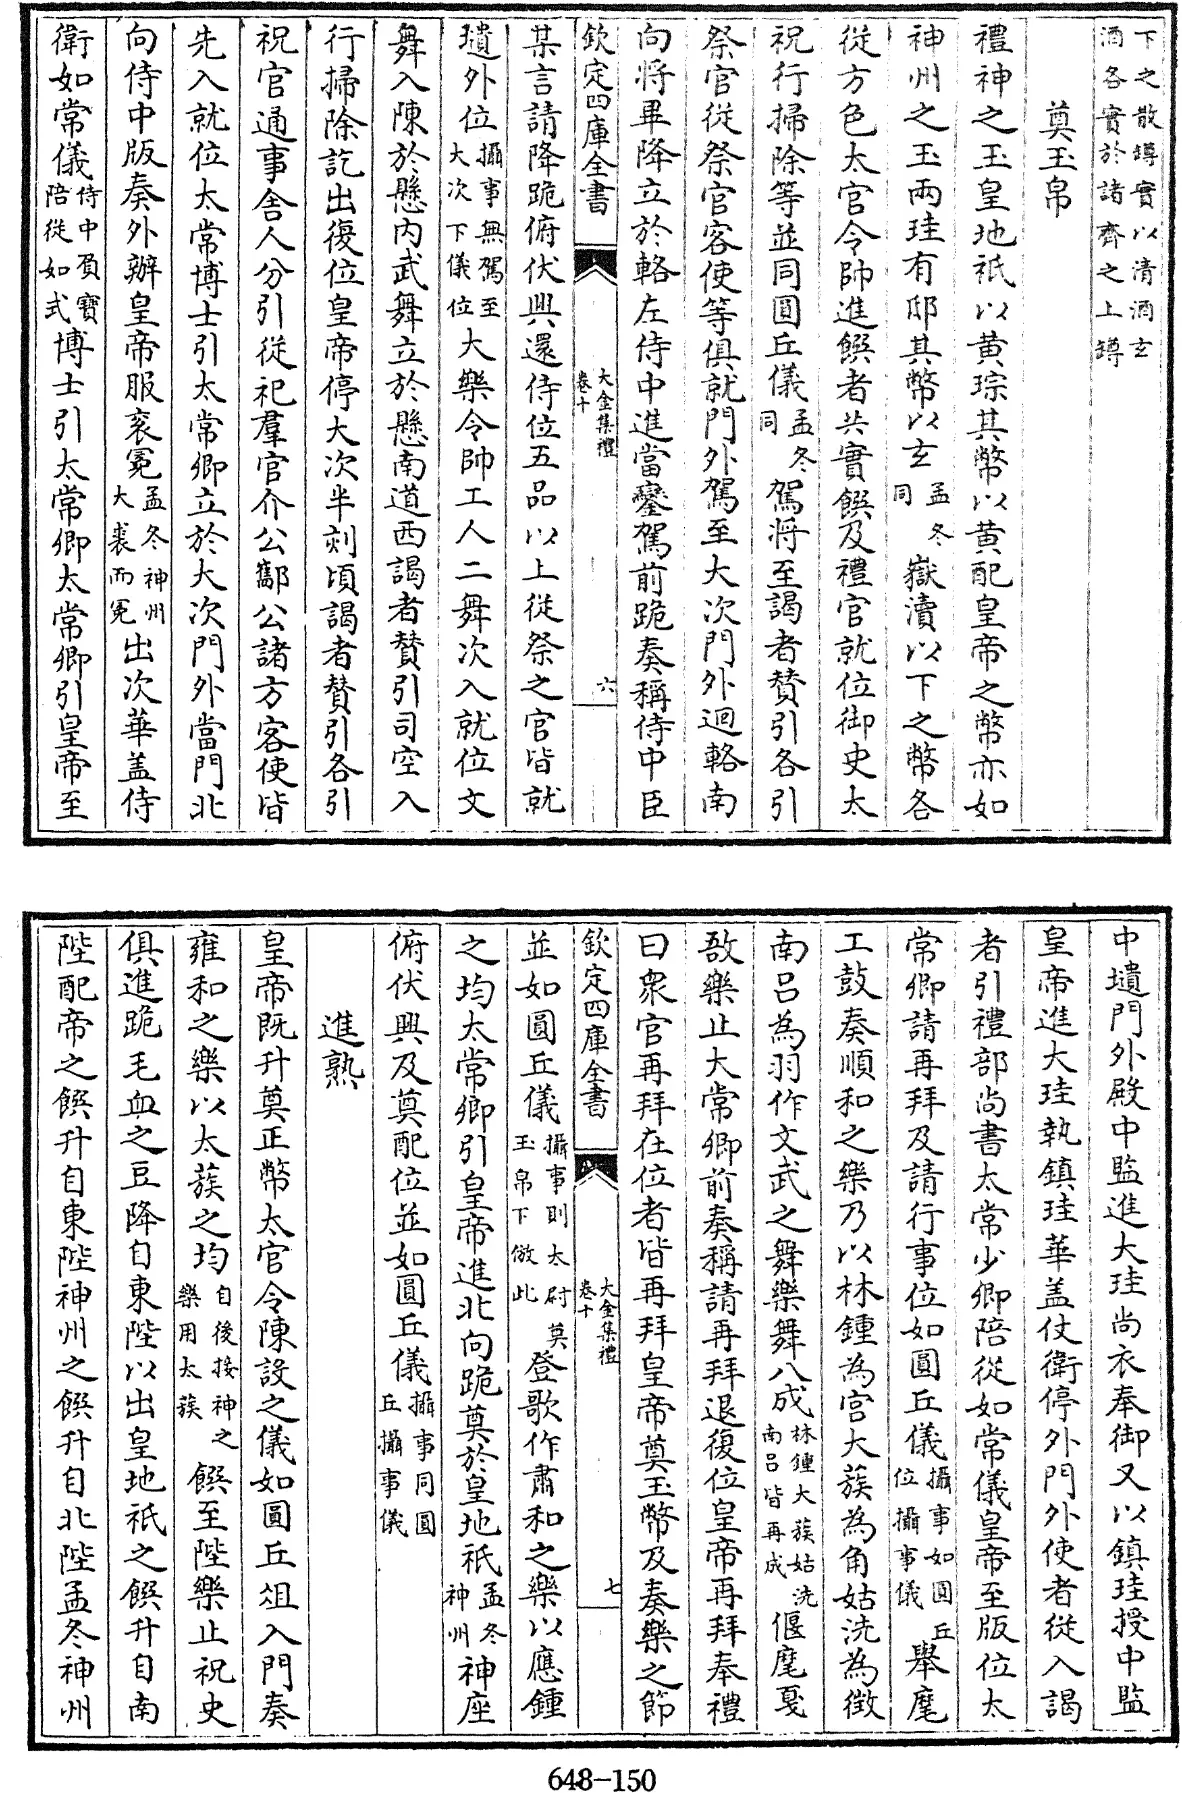 下之散罇實以清酒玄
酒各實於諸齊之上罇
奠玉帛
禮神之玉皇地祇以黃琮其幣以黃配皇帝之幣亦如
神州之玉兩珪有邸其幣以玄孟冬同嶽瀆以下之幣各
從方色太官令帥進饌者共實饌及禮官就位御史太
祝行掃除等並同圓丘儀孟冬同駕將至謁者贊引各引
祭官從祭官客使等俱就門外駕至大次門外迴輅南
向將畢降立於輅左侍中進當鑾駕前跪奏稱侍中臣
欽定四庫全書
大金集禮
卷十
六
某言請降跪俯伏興還侍位五品以上從祭之官皆就
壝外位攝事無駕至大次下儀位大樂令帥工人二舞次入就位文
舞入陳於懸內武舞立於懸南道西謁者贊引司空入
行掃除訖出復位皇帝停大次半刻頃謁者贊引各引
祝官通事舍人分引從祀羣官介公酅公諸方客使皆
先入就位太常博士引太常卿立於大次門外當門北
向侍中版奏外辦皇帝服衮冕孟冬神州大裘而冕出次華盖侍
衛如常儀侍中負寶陪從如式博士引太常卿太常卿引皇帝至
中壝門外殿中監進大珪尚衣奉御又以鎮珪授中監
皇帝進大珪執鎮珪華盖仗衛停外門外使者從入謁
者引禮部尚書太常少卿陪從如常儀皇帝至版位太
常卿請再拜及請行事位如圓丘儀攝事如圓丘位攝事儀舉麾
工鼓奏順和之樂乃以林鍾為宮大蔟為角姑洗為徵
南呂為羽作文武之舞樂舞八成林鍾大蔟姑洗南呂皆再成偃麾戛
敔樂止大常卿前奏稱請再拜退復位皇帝再拜奉禮
曰衆官再拜在位者皆再拜皇帝奠玉幣及奏樂之節
欽定四庫全書
大金集禮
卷十
七
並如圓丘儀攝事則太尉奠玉帛下倣此登歌作肅和之樂以應鍾
之均太常卿引皇帝進北向跪奠於皇地祇孟冬神州神座
俯伏興及奠配位並如圓丘儀攝事同圓丘攝事儀
進熟
皇帝既升奠正幣太官令陳設之儀如圓丘俎入門奏
雍和之樂以太蔟之均自後接神之樂用太蔟饌至陛樂止祝史
俱進跪毛血之豆降自東陛以出皇地祇之饌升自南
陛配帝之饌升自東陛神州之饌升自北陛孟冬神州
648-150